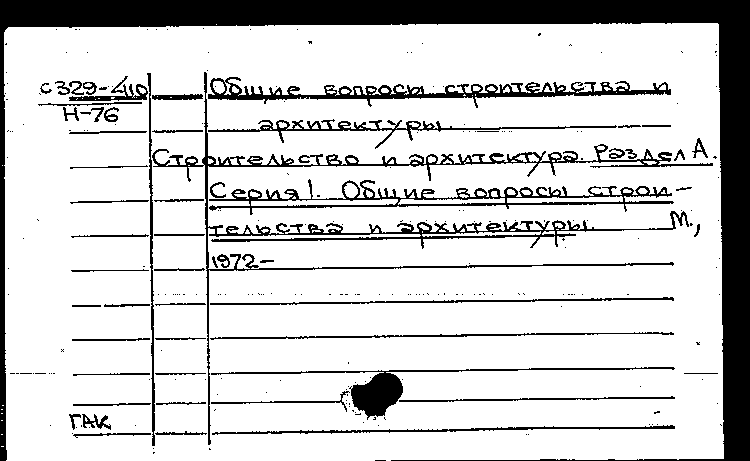 с329-410 Общие вопросы строительства и
Н-76 архитектуры.
Строительство и архитектура. Раздел А.
Серия 1. Общие вопросы строи-
тельства и архитектуры. М.,
1972-
ГАК